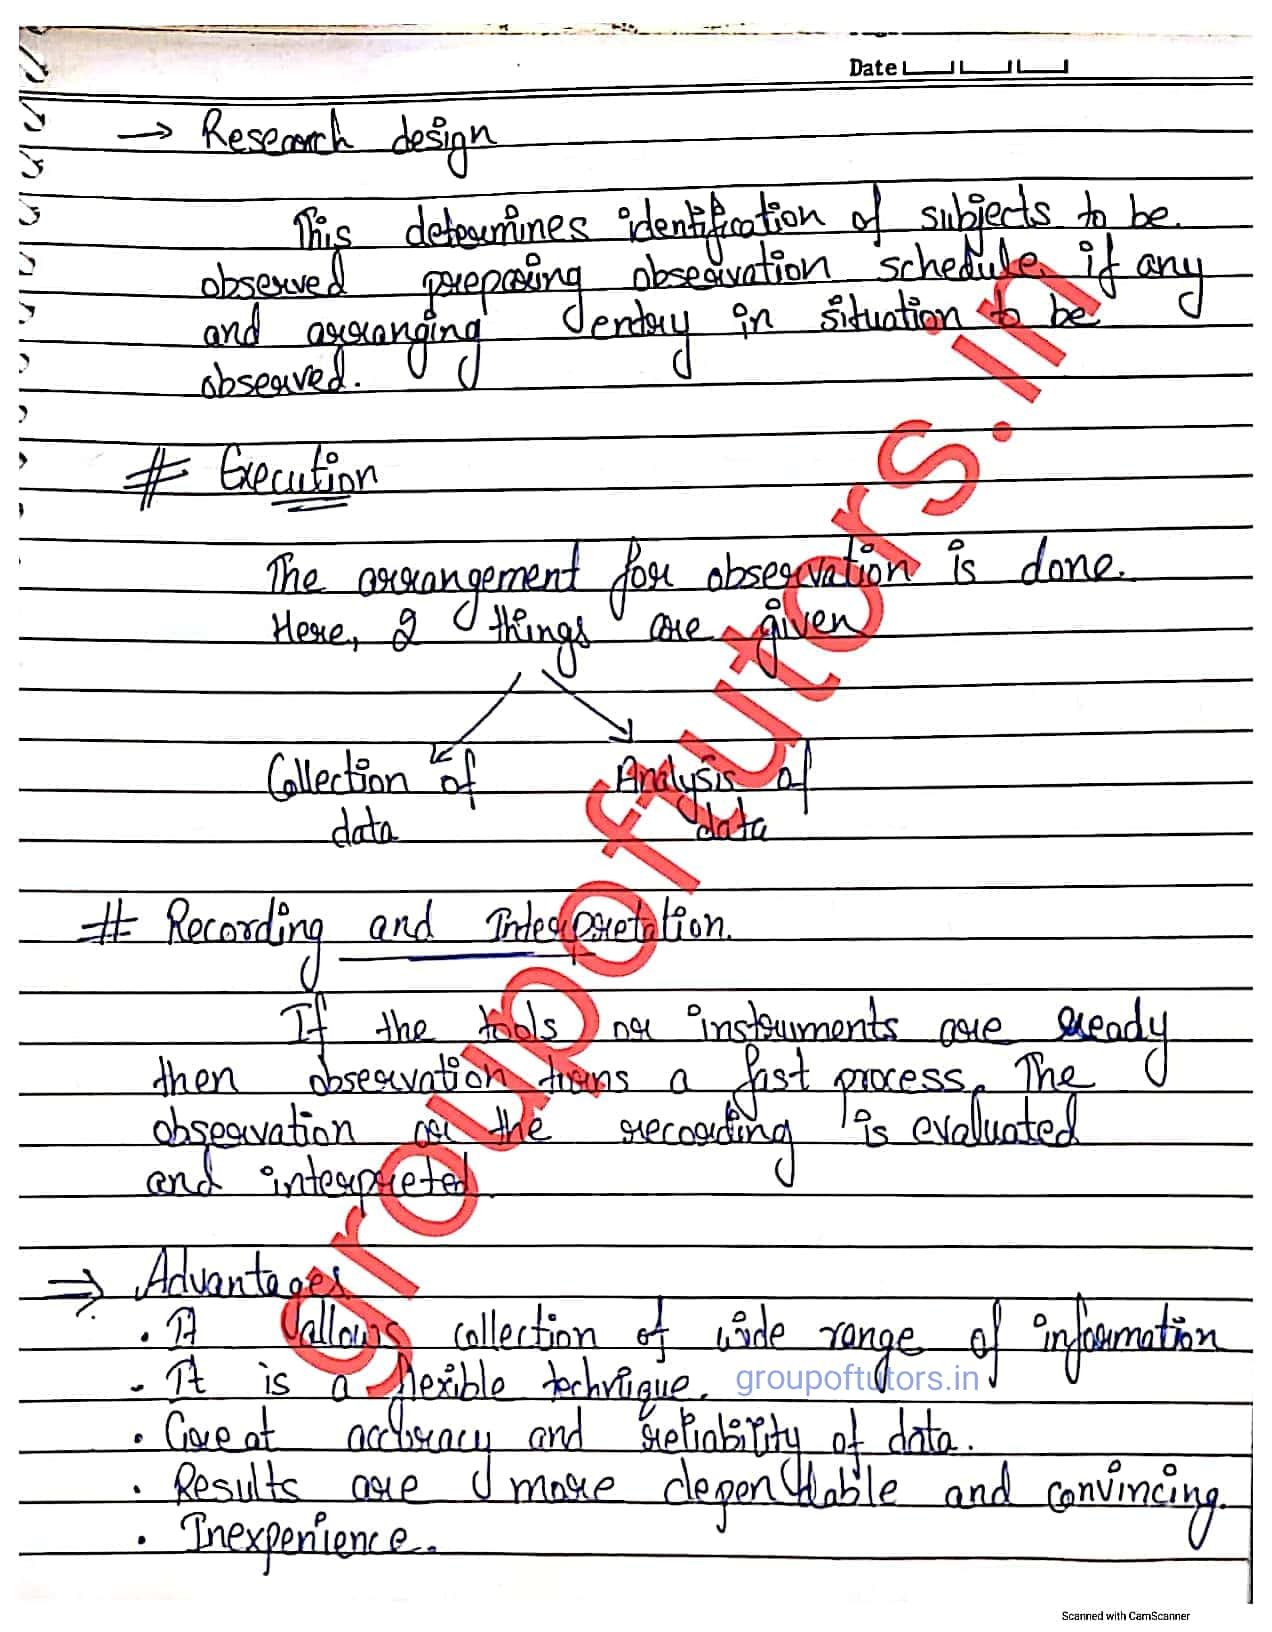 Date
→ Research design
This determines identification of subjects to be
observed preparing observation schedule if any
and arranging entry in situation to be
observed.
# Execution
The arrangement for observation is done.
Here, 2 things are given
Collection of data
Analysis of data
# Recording and Interpretation.
If the tools or instruments are ready
then observation turns a fast process. The
observation or the recording is evaluated
and interpreted.
⇒ Advantages
• It allows collection of wide range of information
- It is a flexible technique.
groupoftutors.in
• Great accuracy and reliability of data.
• Results are more dependable and convincing.
• Inexperience.
groupoftutors.in
Scanned with CamScanner